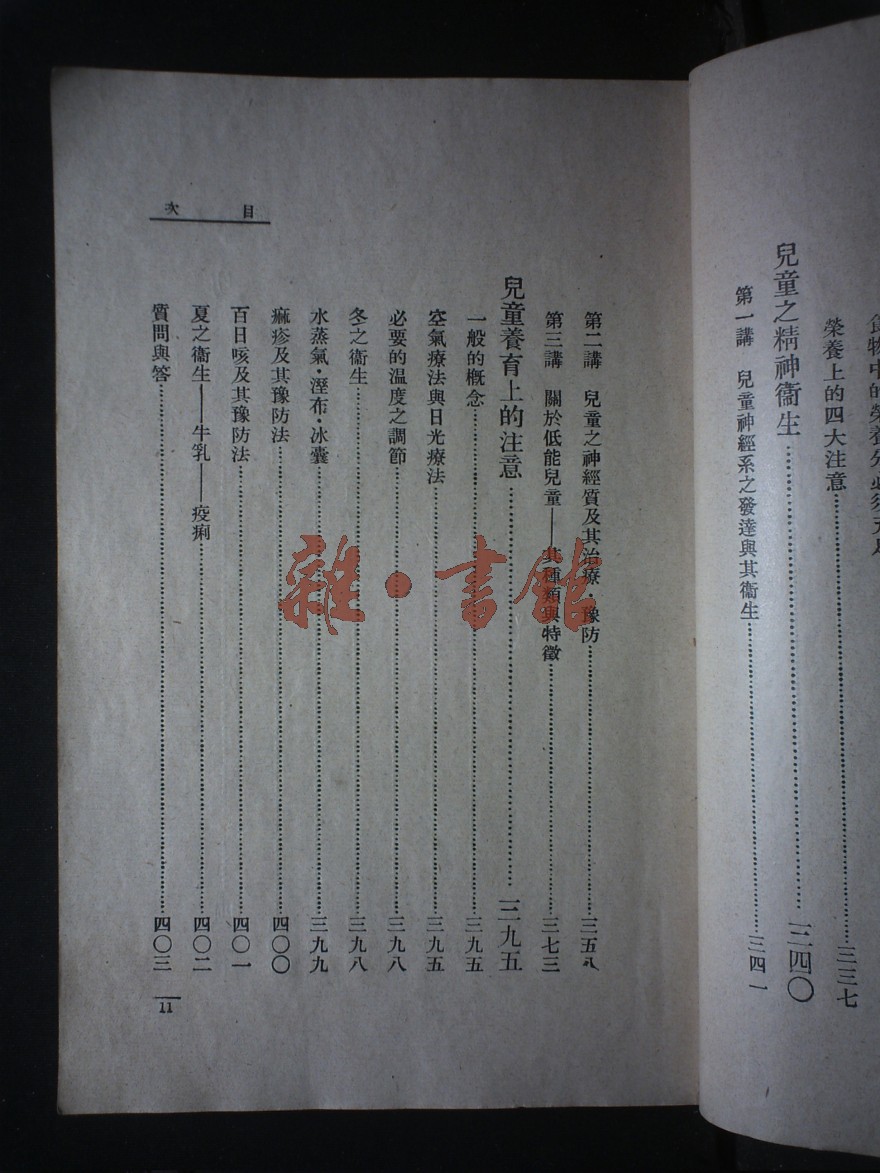 榮養上的四大注意……三三七
兒童之精神衞生……三四〇
第一講　兒童神經系之發達與其衞生……三四一
目次
第二講　兒童之神經質及其治療·豫防……三五八
第三講　關於低能兒童——其種類與特徵……三七三
兒童養育上的注意……三九五
一般的概念……三九五
空氣療法與日光療法……三九五
必要的溫度之調節……三九八
冬之衞生……三九八
水蒸氣·溼布·冰囊……三九九
痲疹及其豫防法……四〇〇
百日咳及其豫防法……四〇一
夏之衞生——牛乳——疫痢……四〇二
質問與答……四〇三
11
雜·書館